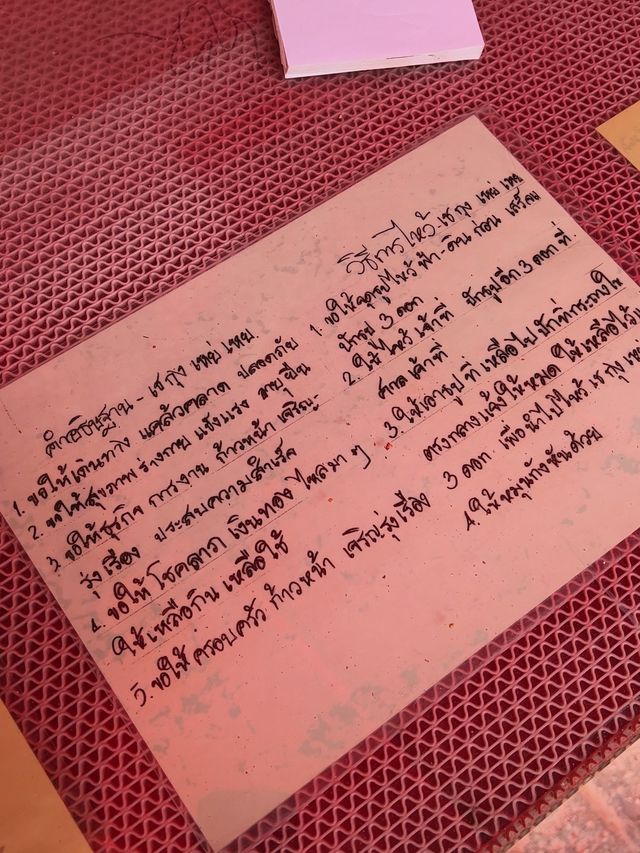 คำอธิษฐาน - เช กุง เหมี่ย เหย
1. ขอให้เดินทาง แคล้วคลาด ปลอดภัย
2. ขอให้สุขภาพ ร่างกาย แข็งแรง อายุยืน
3. ขอให้ธุรกิจ การงาน ก้าวหน้า เจริญ
รุ่งเรือง ประสบความสำเร็จ
4. ขอให้ โชคลาภ เงินทอง ไหลมา ๆ
ให้เหลือกิน เหลือใช้
5. ขอให้ ครอบครัว ก้าวหน้า เจริญรุ่งเรือง
วิธีการไหว้ เช กุง
1. ขอให้จุดธูปไหว้ ฟ้า-ดิน ก่อน เสร็จ
ปักธูป 3 ดอก
2. ให้ไหว้ เจ้าที่ ปักธูปอีก 3 ดอก ที่
ศาลเจ้าที่
3 ให้เอาธูป ที่ เหลือไป ปักที่กระถางใ
ตรงกลางแจ้งให้หมด ให้เหลือไว้
3 ดอก เพื่อนำไปไหว้ เช กุง
4. ให้หมุนกังหันด้วย